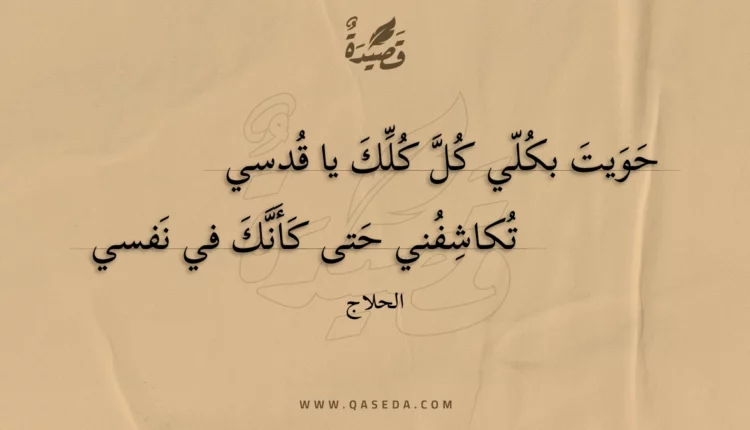 قَصِيدَةٌ
حَوَيتَ بكُلّي كُلَّ كُلِّكَ يا قُدسي
تُكاشِفُني حَتى كَأَنَّكَ في نَفسي
الحلاج
WWW.QASEDA.COM